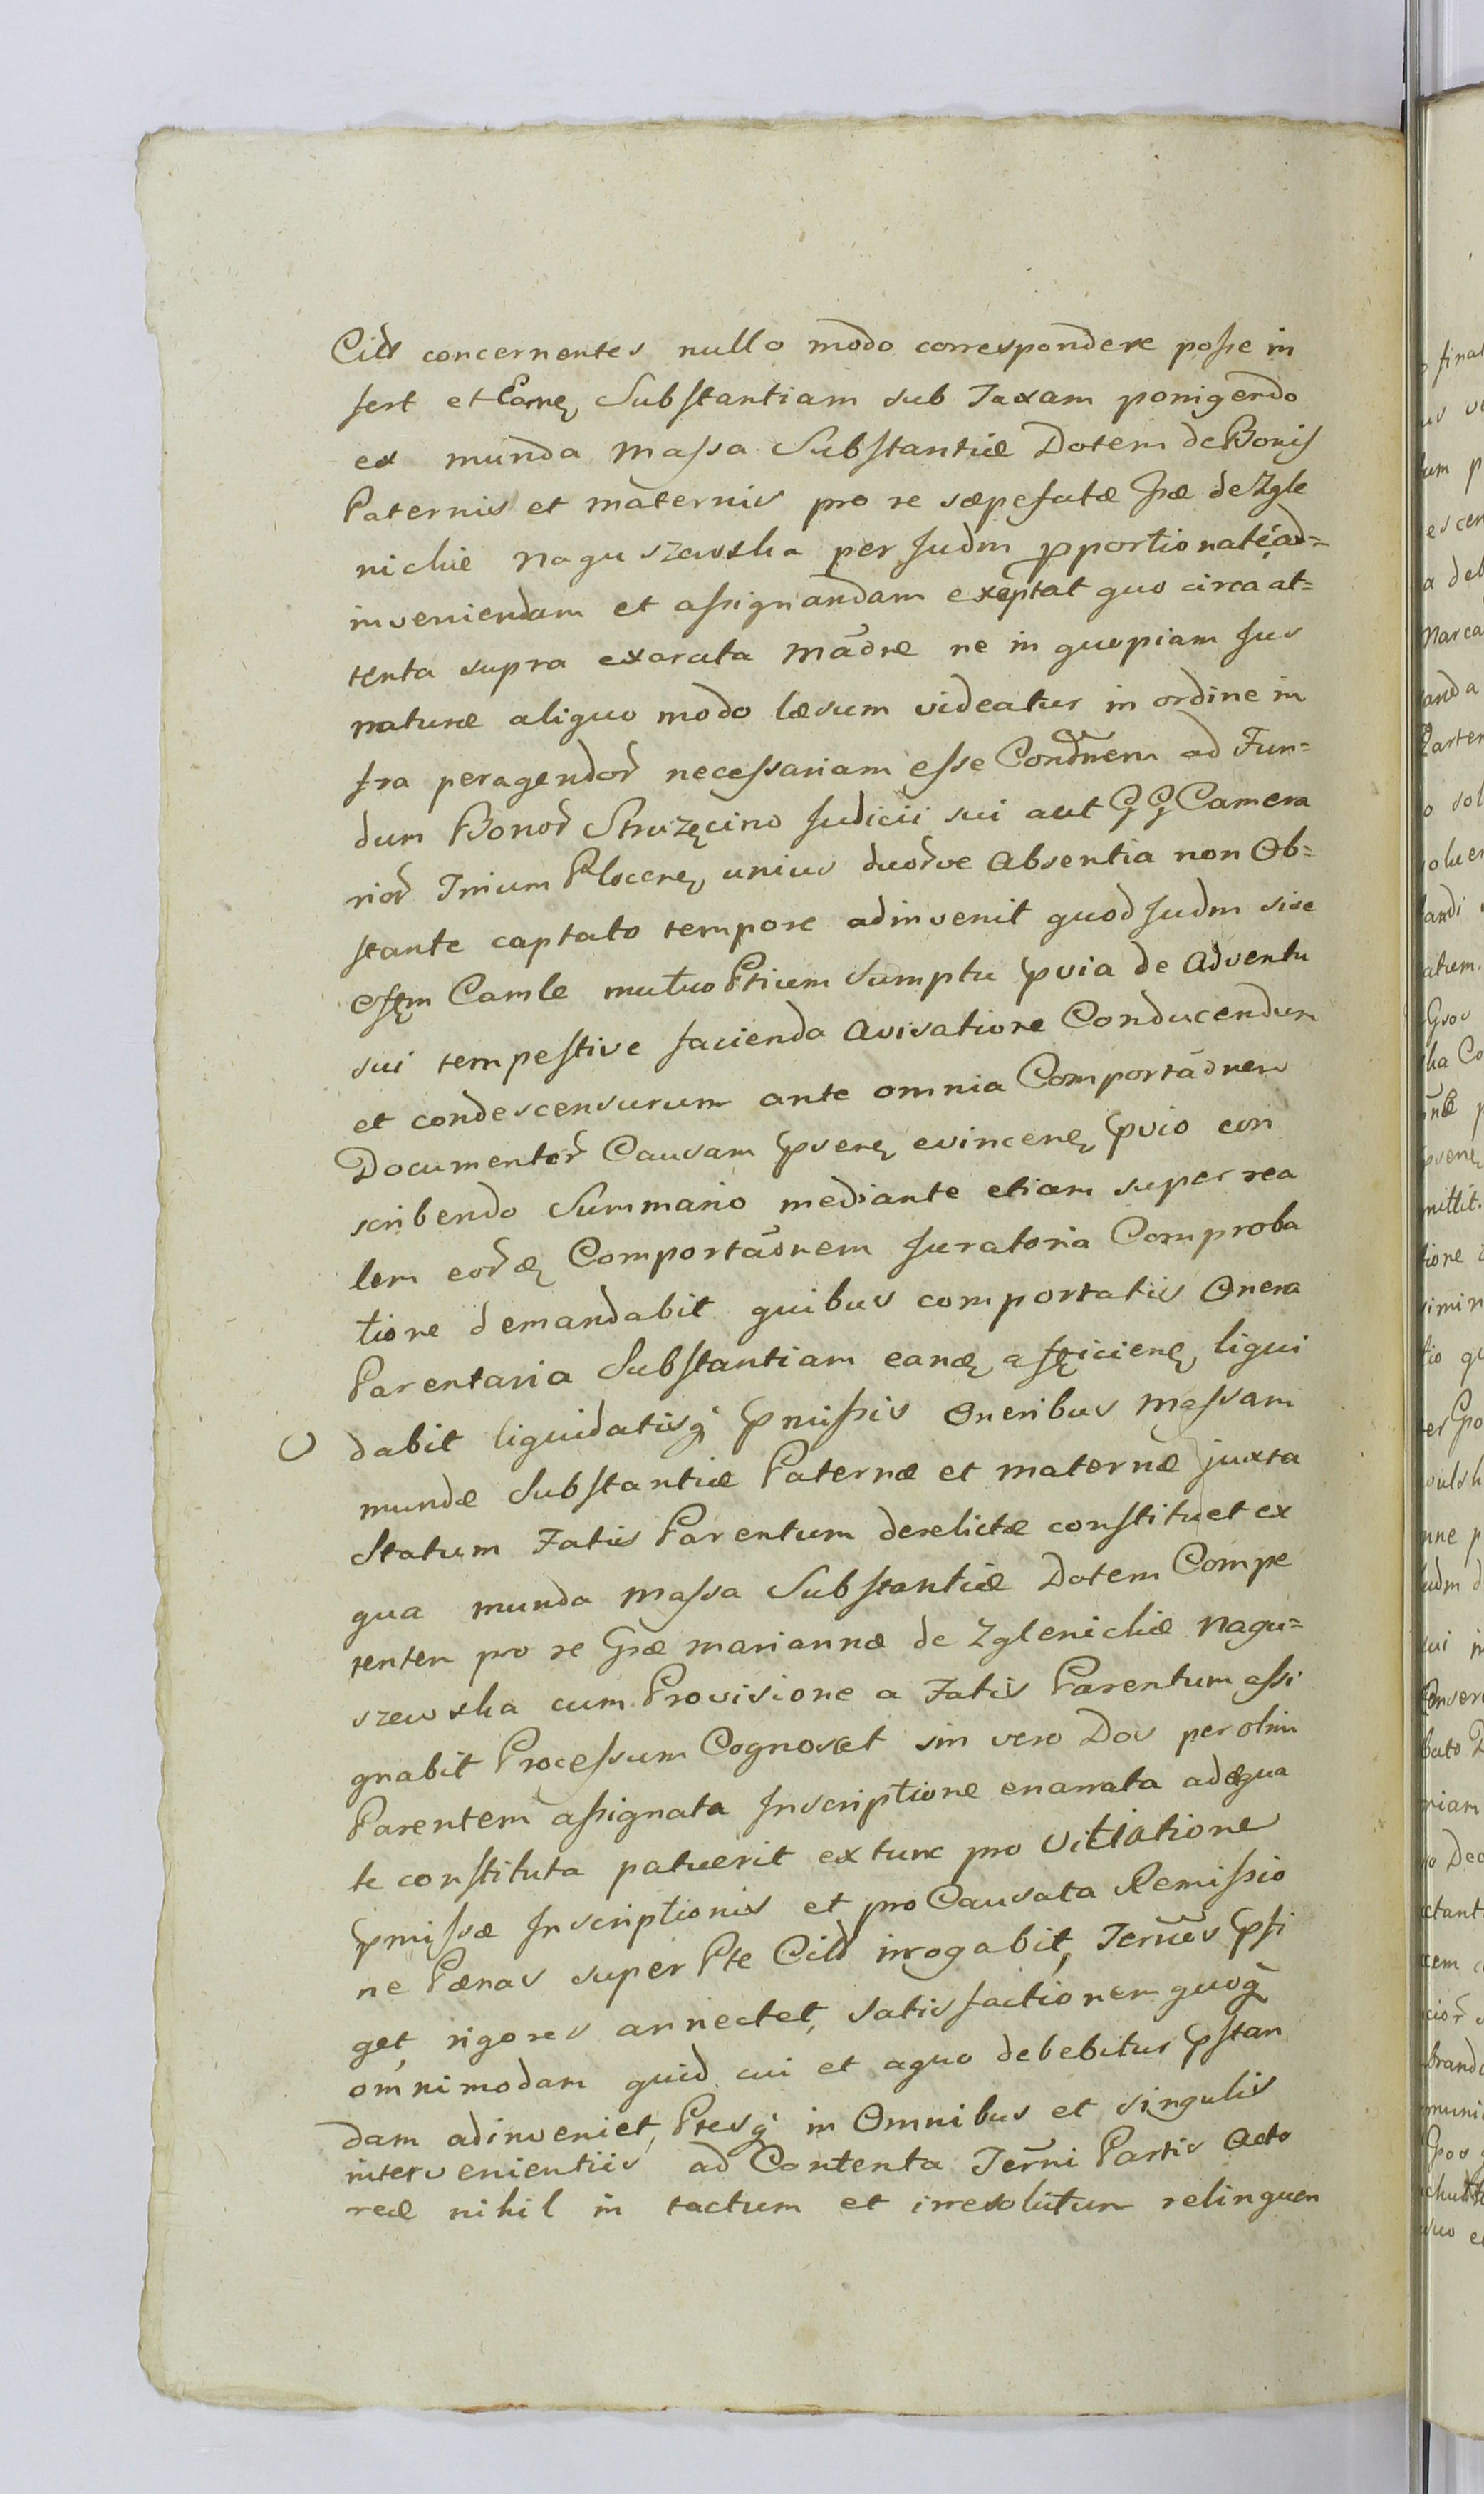 Citts concernentes nullo modo correspondere posse in
fert et Eamę Substantiam sub Taxam porrigendo
ex munda Massa Substantiæ Dotem de Bonis
Paternis et maternis pro re sæpefatæ Gsæ de Zgle
nickie Naguszewska per Judm pportionate ad=
inveniendam et assignandam exoptat quo circa at=
tenta supra exarata mãone ne in quopiam Jus
naturæ aliquo modo læsum videatur in ordine in
fra peragendor necessariam esse Condnem ad Fun=
dum Bonor Struzęcino Judicii sui aut GG Camera
rior Trium Plocenę unius duorve Absentia non Ob=
stante captato tempore adinvenit quod Judm sive
Offm Camle mutuo Ptium Sumptu pvia de Adventu
sui tempestive facienda avisatione Conducendum
et condescensurum ante omnia Comportãonem
Documentor Causam pvenę evincenę pvio con
scribendo Summario mediante etiam super rea
lem eordę Comportãonem Juratoria Comproba
tione demandabit quibus comportatis Onera
Parentaria Substantiam eandę afficienę liqui
dabit liquidatisq pmissis Oneribus Massam
mundæ Substantiæ Paternæ et maternæ juxta
Statum Fatis Parentum derelictæ constituet ex
qua munda Massa Substantiæ Dotem Compe
tentem pro re Gsæ Mariannæ de Zglenickie Nagu=
szewska cum Provisione a Fatis Parentum assi
gnabit Processum Cognoscet sin vero Dos per olim
Parentem assignata Inscriptione enarrata adæqua
te constituta patuerit extunc pro Vitiatione
pmissæ Inscriptionis et pro Causata Remissio
ne Pænas super Pte Citt irrogabit, Termes pfi
get, rigores annectet, satisfactionem quoq
omnimodam quid cui et a quo debebitur pstan
dam adinveniet, Ptesq in Omnibus et singulis
intervenientiis ad Contenta Termi Partis Acto
reæ nihil in tactum et irresolutum relinquen